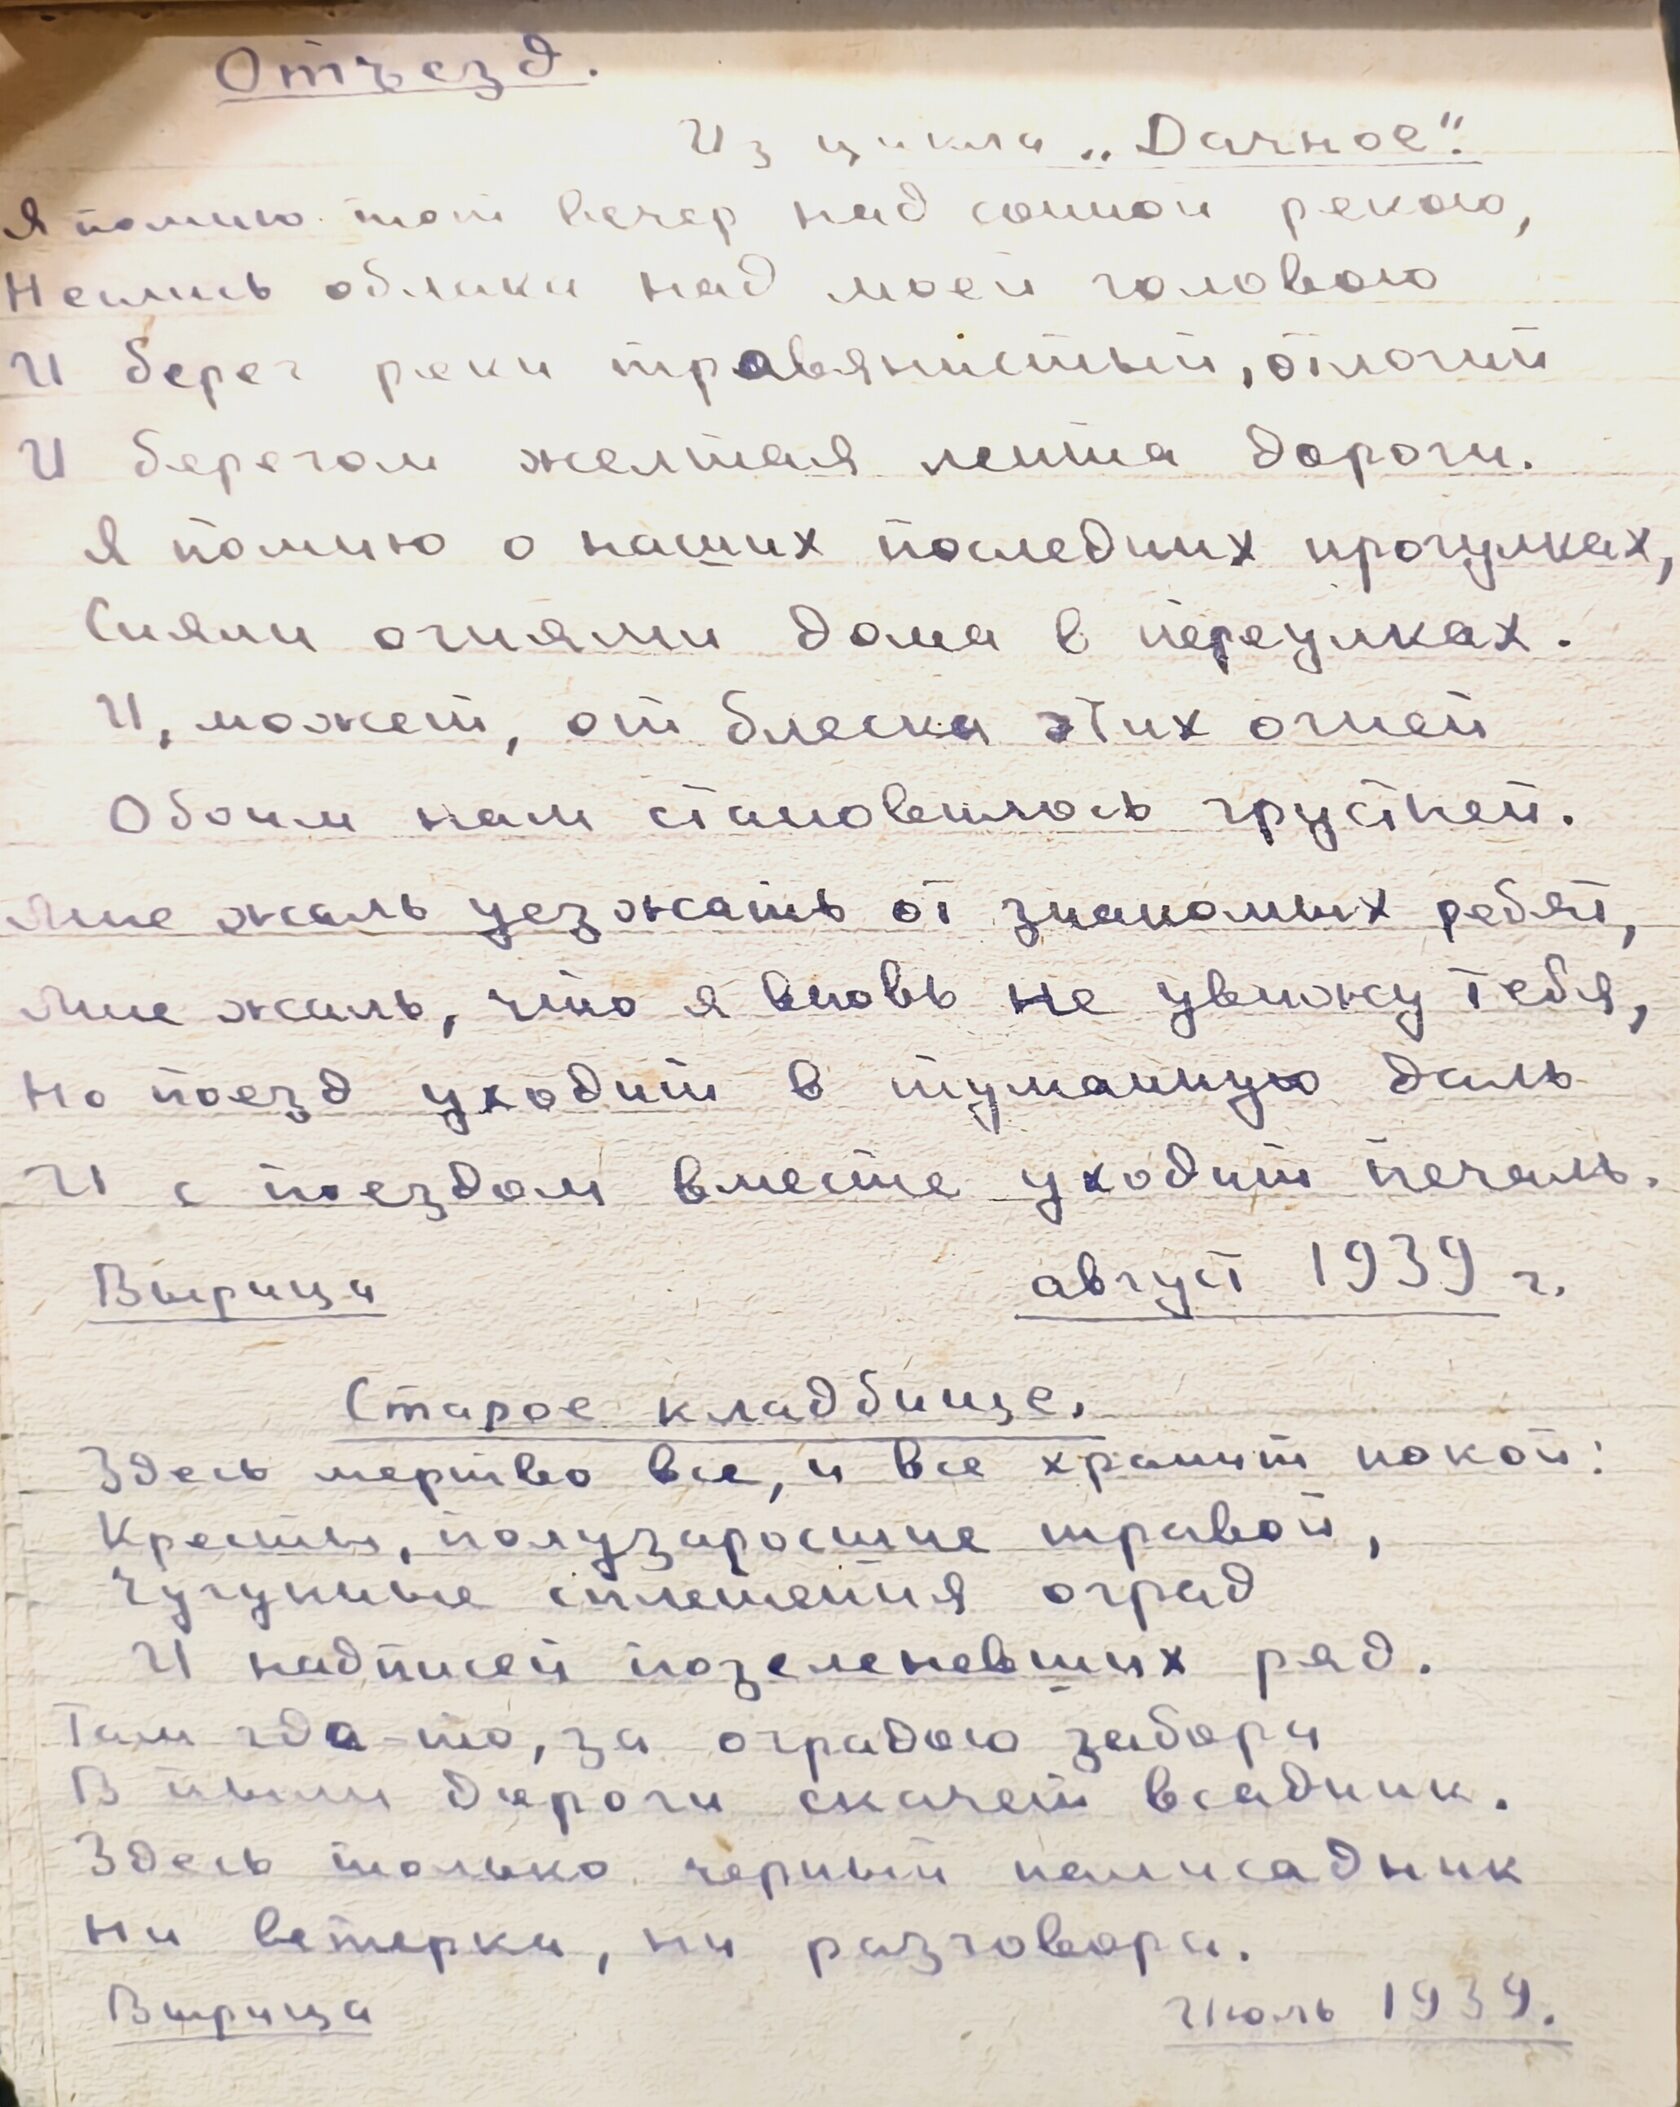 Отъезд.
Из цикла „Дачное".
Я помню тот вечер над сонной рекою,
Неслись облака над моей головою
И берег реки травянистый, отлогий
И берегом желтая лента дороги.
Я помню о наших последних прогулках,
Сияли огнями дома в переулках.
И, может, от блеска этих огней
Обоим нам становилось грустней.
Мне жаль уезжать от знакомых ребят,
Мне жаль, что я вновь не увижу тебя,
Но поезд уходит в туманную даль
И с поездом вместе уходит печаль.
Вырица август 1939 г.
Старое кладбище.
Здесь мертво все, и все хранит покой:
Кресты, полузаросшие травой,
Чугунные сплетения оград
И надписей позеленевших ряд.
Там где-то, за оградою забора
В пыли дороги скачет всадник.
Здесь только черный палисадник
Ни ветерка, ни разговора.
Вырица Июль 1939.